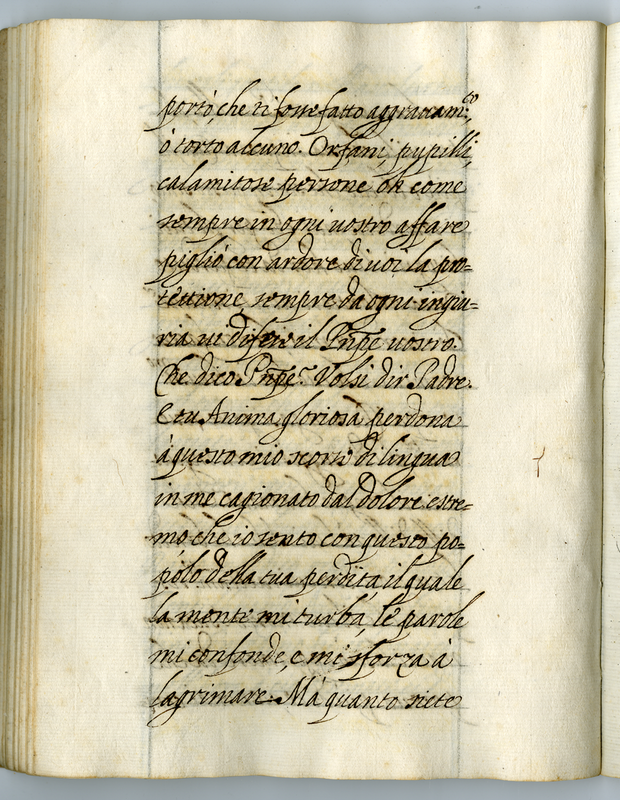 portò, che ti fosse fatto aggrauam.to,
ò torto alcuno. Orfani, pupilli,
calamitose persone oh come
sempre in ogni uostro affare
pigliò con ardore di uoi la pro=
tettione, sempre da ogni ingiu=
ria ui difese il Pnpe uostro.
Che dico Pnpe? Volsi dir Padre.
E tu Anima gloriosa perdona
à questo mio scorso di lingua
in me cagionato dal dolore estre=
mo che io sento con questo po=
polo della tua perdita, il quale
la mente mi turba, le parole
mi confonde, e mi sforza à
lagrimare. Mà quanto siete